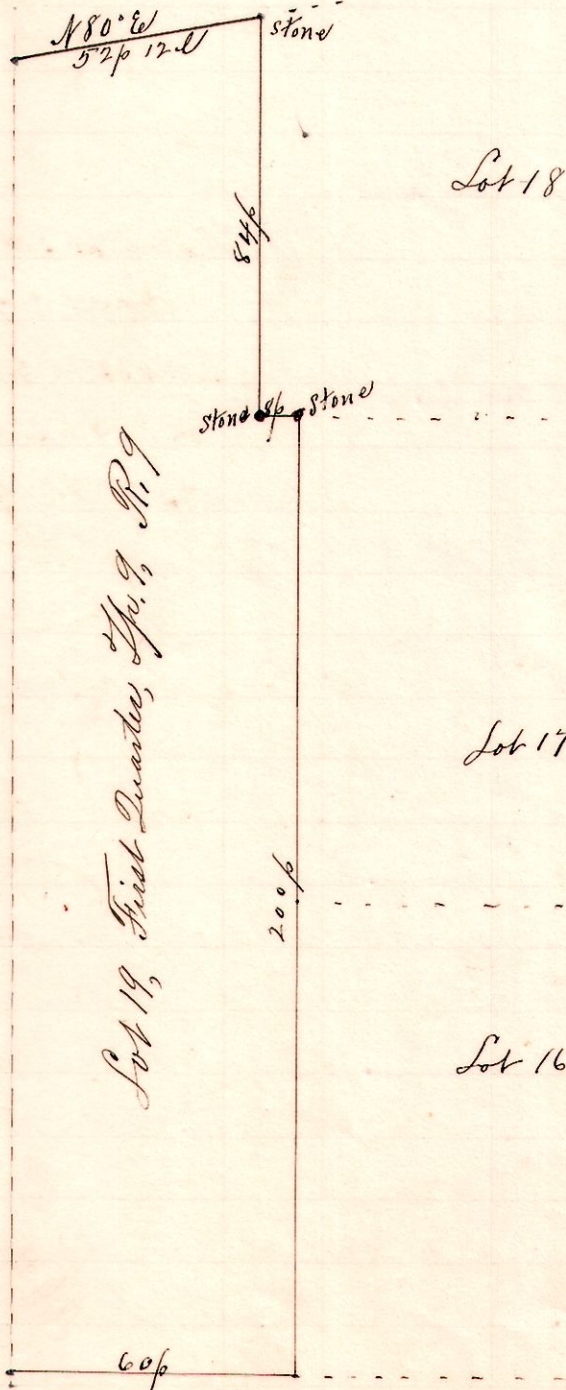 N 80° E
52p 12 l
Stone
Lot 18
84p
Stone
8p
Stone
Lot 19, First Quarter, Tp. 9, R. 9
Lot 17
200p
Lot 16
60p